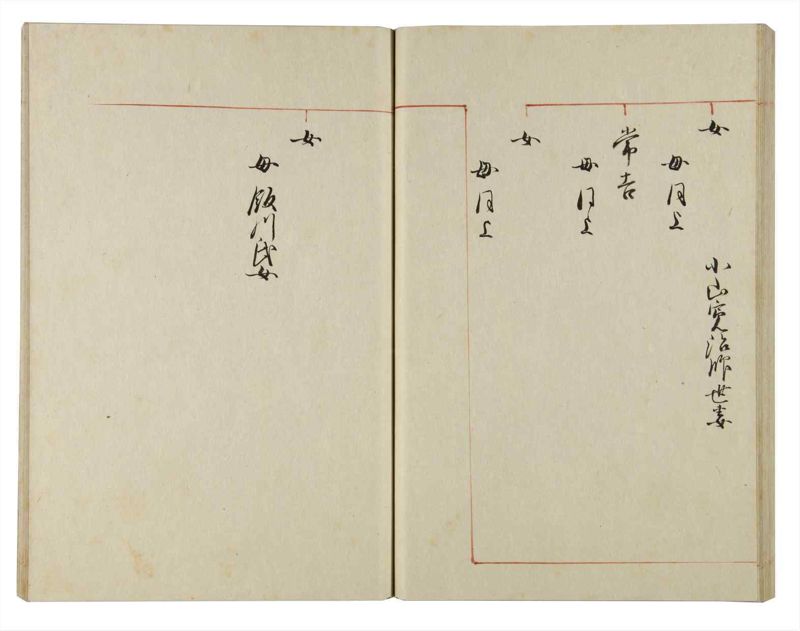 女
小山寛治郎世妻
母同上
常吉
母同上
女
母同上
女
母飯川氏女